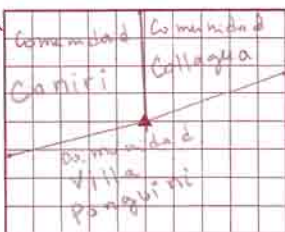 Comunidad
Caniri
Comunidad
Collagua
Comunidad
Villa
Ponguini